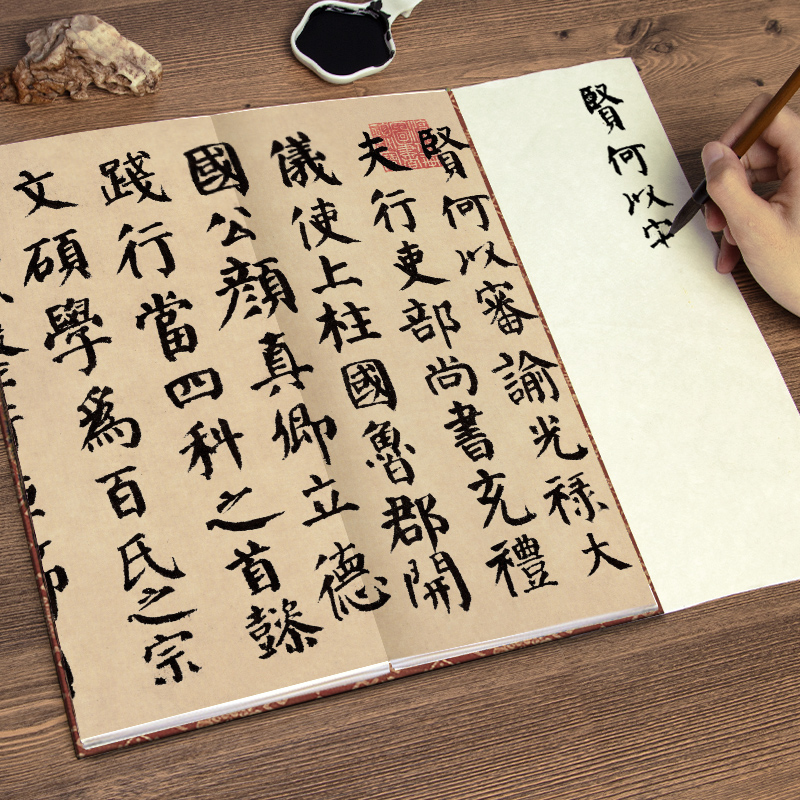 賢何以
賢何以審諭光祿大
夫行吏部尚書充禮
儀使上柱國魯郡開
國公顏真卿立德
踐行當四科之首懿
文碩學為百氏之宗